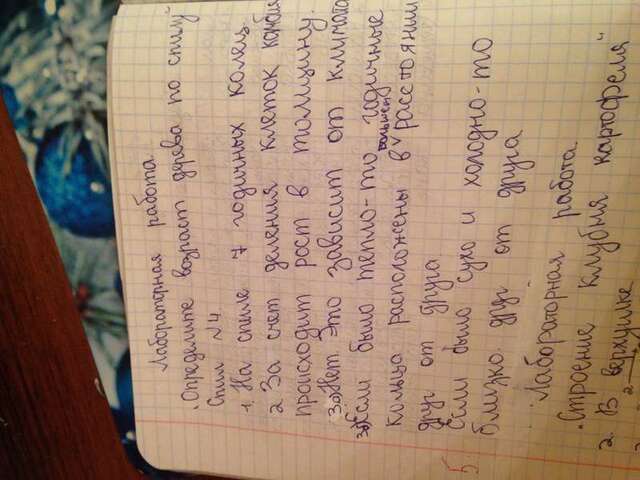 Лабораторная работа
„Определите возраст дерева по спилу"
Спил №4.
1. На спиле 7 годичных колец.
2. За счет деления клеток камбия
происходит рост в толщину.
3а) Нет. Это зависит от климата
3б) Если было тепло-то годичные
кольца расположены в большем расстоянии
друг от друга.
5.
Если было сухо и холодно-то
близко друг от друга
Лабораторная работа.
„Строение клубня картофеля"
2. В верхушке
2